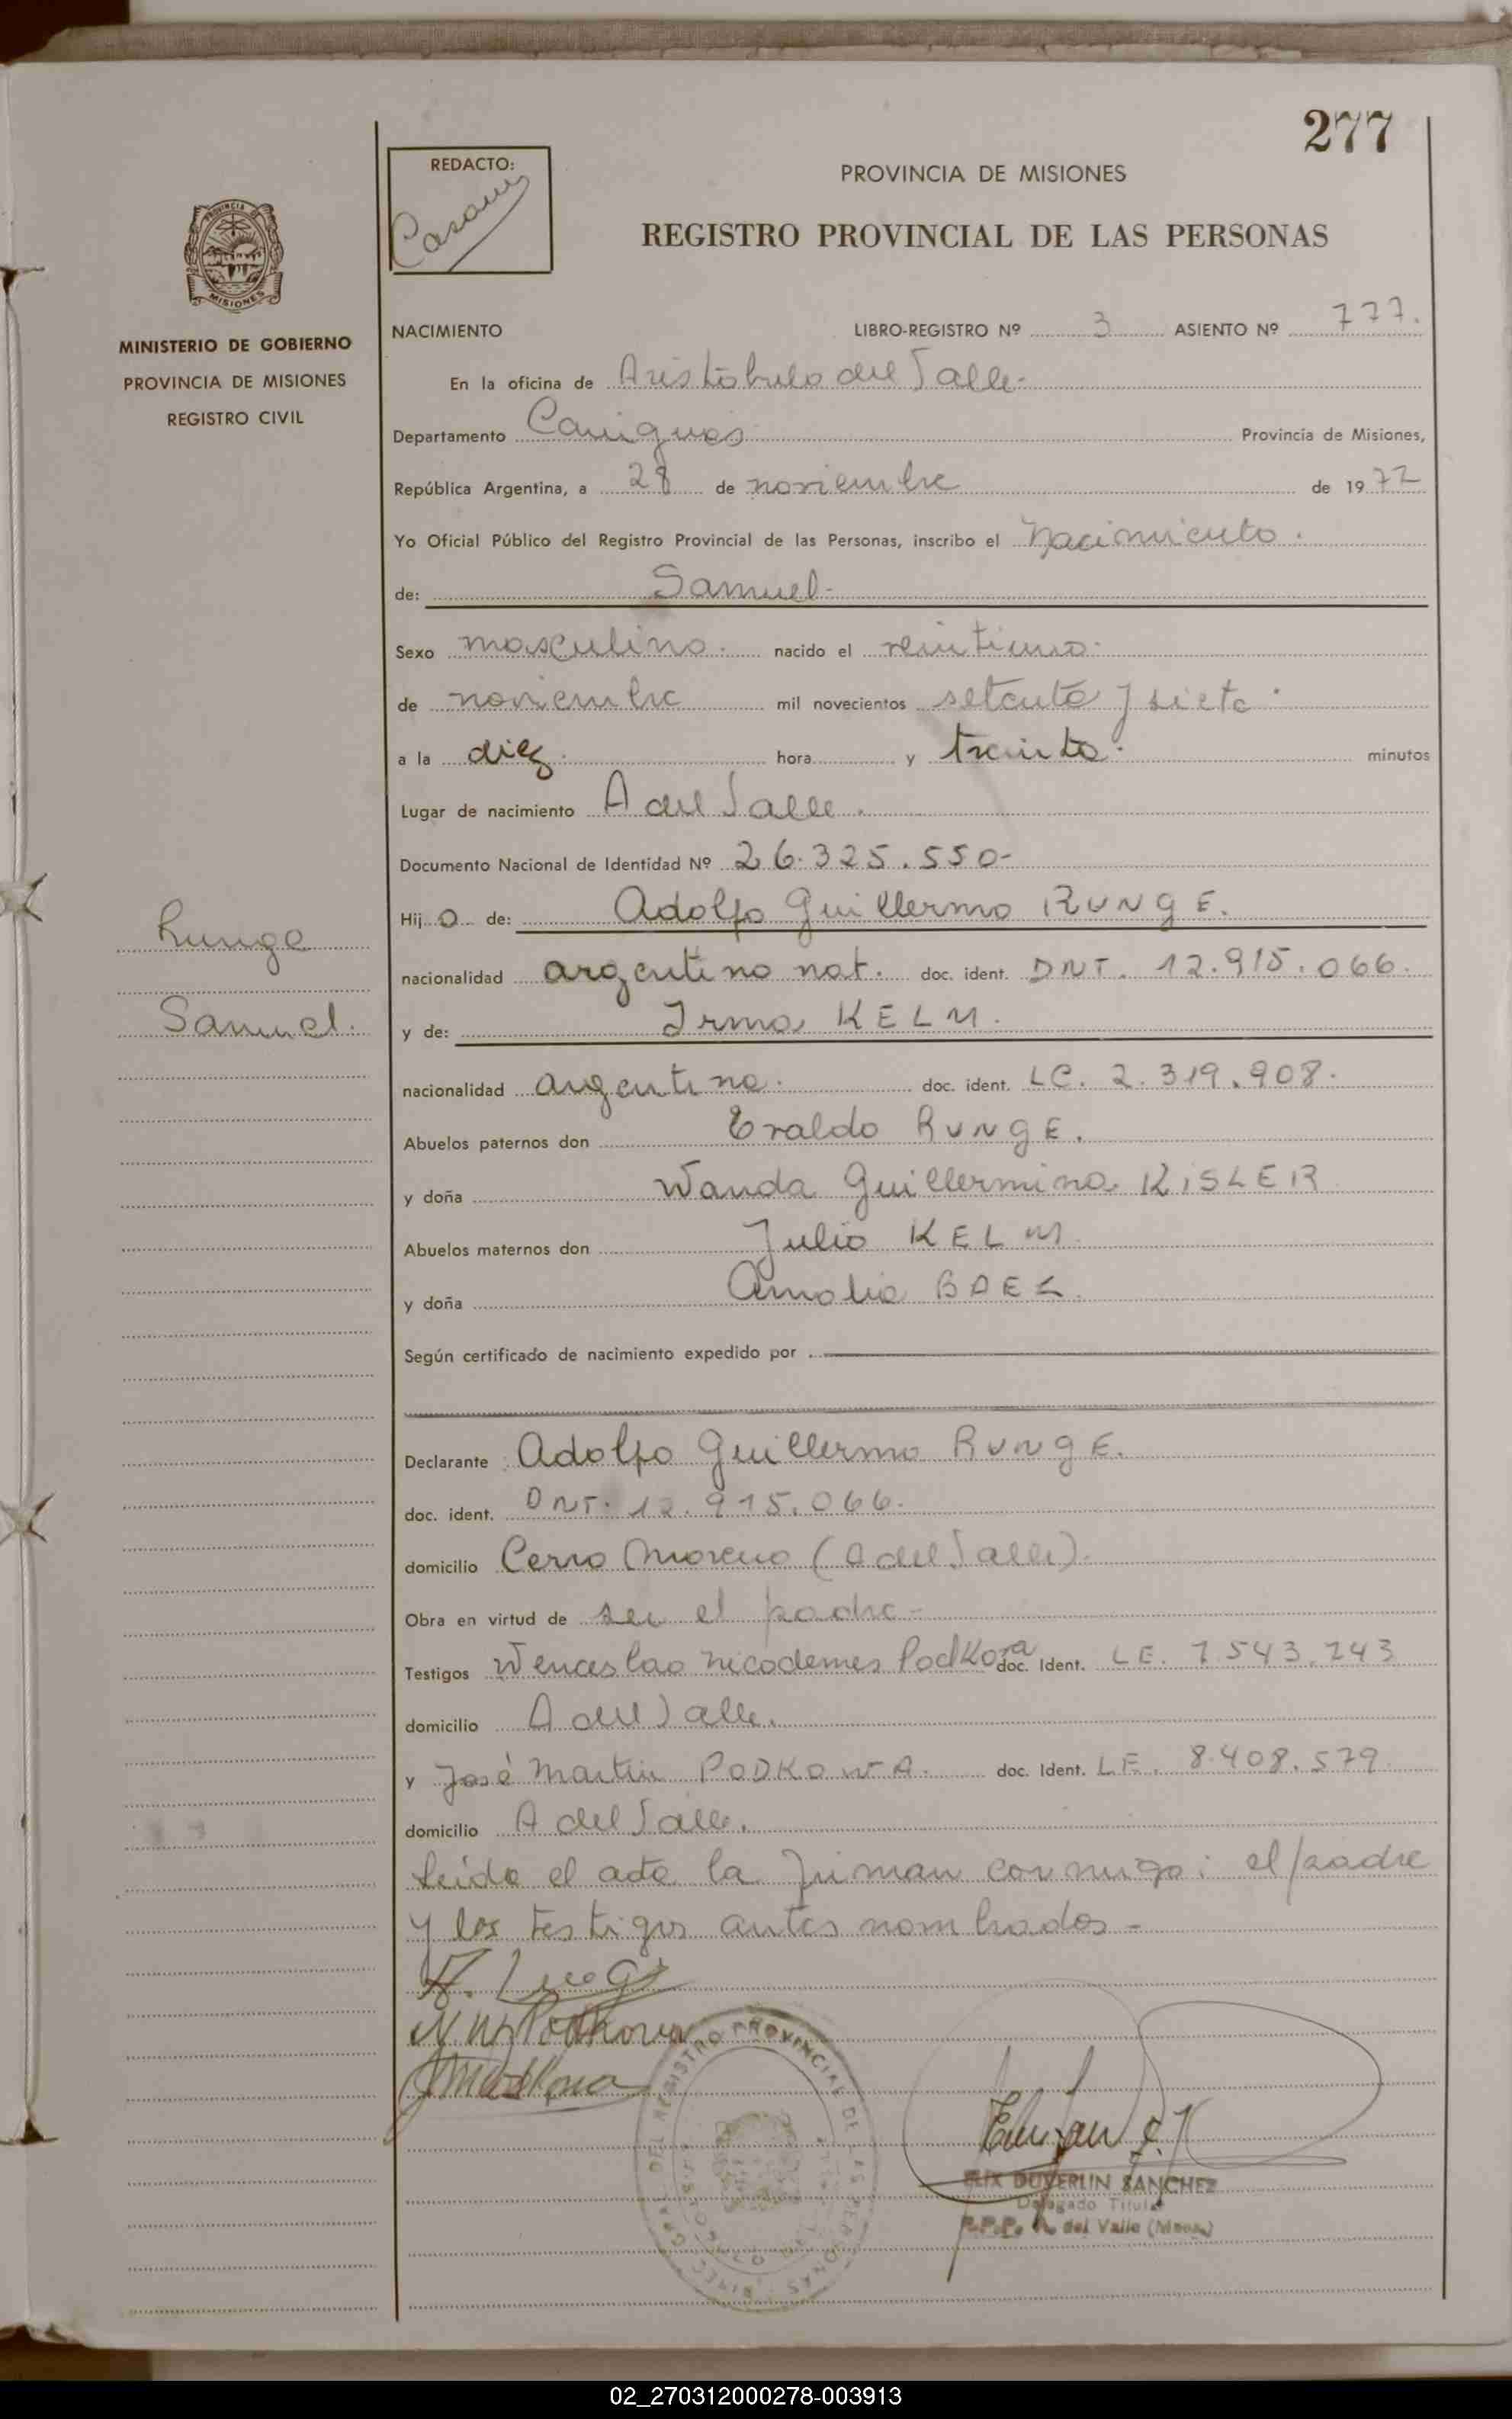 277
REDACTO:
PROVINCIA DE MISIONES
REGISTRO PROVINCIAL DE LAS PERSONAS
PROVINCIA DE
MISIONES
MINISTERIO DE GOBIERNO
PROVINCIA DE MISIONES
REGISTRO CIVIL
NACIMIENTO LIBRO-REGISTRO Nº 3 ASIENTO Nº 777.
En la oficina de Aristóbulo del Valle-
Departamento Cainguás Provincia de Misiones,
República Argentina, a 28 de noviembre de 1977
Yo Oficial Público del Registro Provincial de las Personas, inscribo el nacimiento.
de: Samuel-
Sexo masculino. nacido el veintiuno-
de noviembre mil novecientos setenta y siete.
a la diez. hora y treinta. minutos
Lugar de nacimiento A del Valle.
Documento Nacional de Identidad Nº 26.325.550-
Hij o de: Adolfo Guillermo RUNGE.
Runge
nacionalidad argentino nat. doc. ident. DNI. 12.915.066.
Samuel.
y de: Irma KELM.
nacionalidad argentina. doc. ident. LC. 2.319.908.
Abuelos paternos don Evaldo RUNGE.
y doña Wanda Guillermina KISLER
Abuelos maternos don Julio KELM
y doña Amalia
Según certificado de nacimiento expedido por
Declarante Adolfo Guillermo RUNGE.
doc. ident. DNI. 12.915.066.
domicilio Cerro Moreno (A del Valle).
Obra en virtud de ser el padre-
Testigos Wenceslao Nicodemes Podkova doc. Ident. LE. 7.543.243
domicilio A del Valle.
y José Martin PODKOWA. doc. Ident. LE. 8.408.579.
domicilio A del Valle.
Leída el acta la firman conmigo: el padre
y los testigos antes nombrados-
REGISTRO PROVINCIAL DE LAS PERSONAS
DUVERLIN SANCHEZ
Delegado Titular
R.P.P. A. del Valle (Mnes.)
02_270312000278-003913